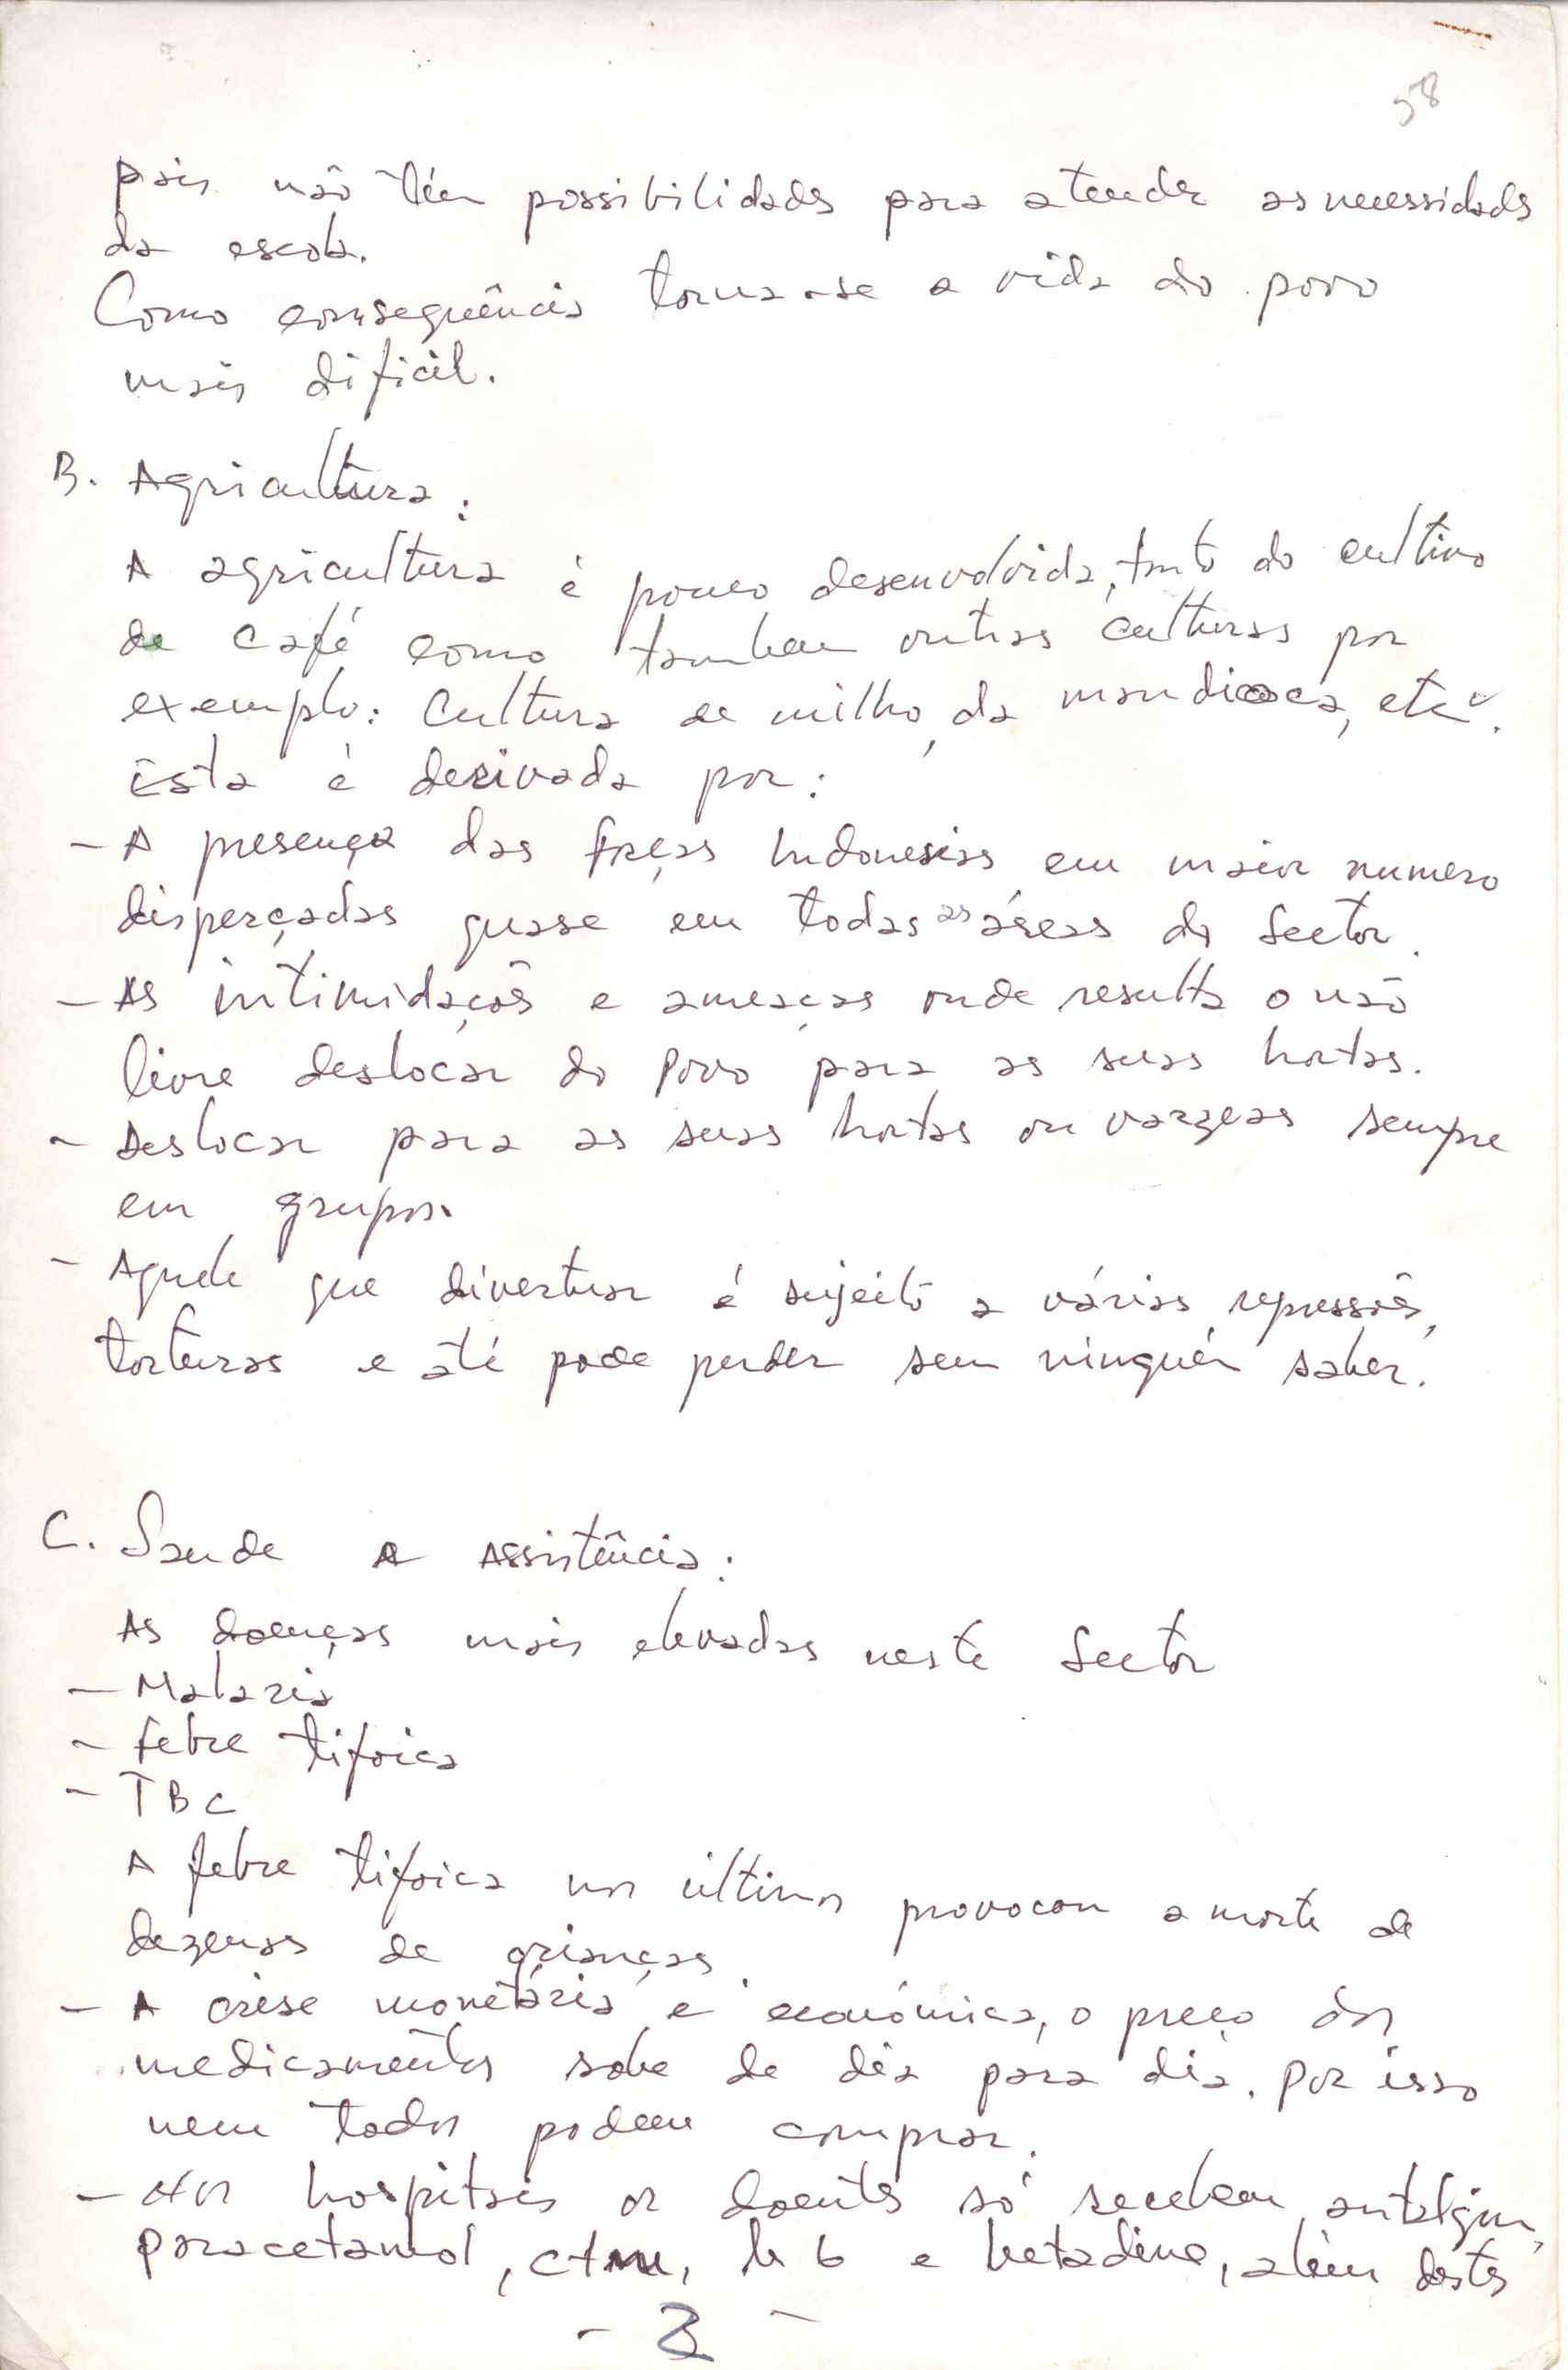 58
pais não têm possibilidades para atender as necessidades
da escola.
Como consequência torna-se a vida do povo
mais dificil.
B. Agricultura:
A agricultura é pouco desenvolvida, tanto do cultivo
de café como tambem outras culturas por
exemplo: Cultura de milho, da mandioca, etc.
Esta é derivada por:
- A presença das forças Indonesias em maior numero
disperçadas quase em todas as áreas do Sector.
- As intimidações e ameaças onde resulta o não
livre deslocar do povo para as suas hortas.
- Deslocar para as suas hortas ou vargeas sempre
em grupos.
- Aquele que divertur é sujeito a várias repressões,
torturas e até pode perder sem ninguém saber.
C. Saude e Assistência:
As doenças mais elevadas neste Sector
- Malaria
- febre tifoica
- TBC
A febre tifoica nos últimos provocou a morte de
dezenas de crianças.
- A crise monetária e económica, o preço dos
medicamentos sobe de dia para dia. Por isso
nem todos podem comprar.
- Nos hospitais os doentes só recebem antalgin,
paracetamol, ctm, b6 e betadine, além destes
- 3 -